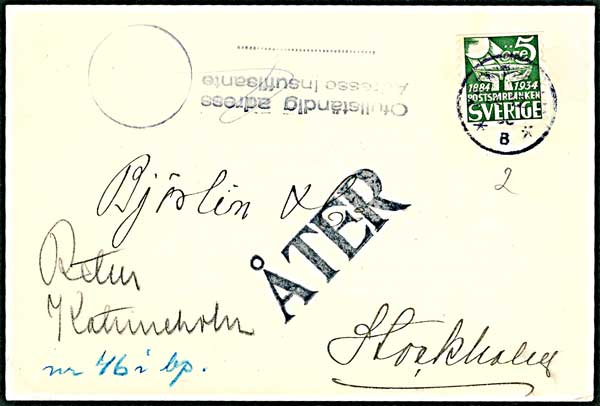 Ofullständig adress
Adresse insuffisante
öre 5
1884 1934
POSTSPARBANKEN
SVERIGE
B
2
Björlin & Co
ÅTER
Retur
Katrineholm
Stockholm
nr 46 i bp.